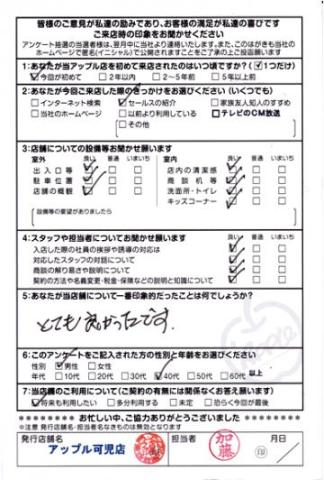 皆様のご意見が私達の励みであり、お客様の満足が私達の喜びです
ご来店時の印象をお聞かせください
アンケート抽選の当選者様は、翌月中に当社より連絡いたします。また、このはがきも当社の
ホームページで匿名(イニシャル)で公開されますことをご了承の上ご投函願います
1:あなたが当アップル店を初めて来店されたのはいつ頃ですか?(✓1つだけ)
☑今回が初めて □2年以内 □2~5年前 □5年以上前
2:あなたが今回ご来店した際のきっかけをお選びください(いくつでも)
□インターネット検索 ☑セールスの紹介 □家族友人知人のすすめ
□当社のホームページ □以前より利用している □テレビのCM放送
□その他
3:店舗についての設備等お聞かせ願います
室外 良い 普通 いまいち 室内 良い 普通 いまいち
出入口等 ☑ □ □ 店内の清潔感 ☑ □ □
駐車位置 ☑ □ □ 商談机等 ☑ □ □
店舗の概観 ☑ □ □ 洗面所・トイレ ☑ □ □
キッズコーナー ☑ □ □
(設備等の要望がありましたら
4:スタッフや担当者についてお聞かせ願います 良い 普通 いまいち
入店した際の社員の挨拶や誘導の対応は ☑ □ □
対応したスタッフの対話について ☑ □ □
商談の解り易さや説明について ☑ □ □
契約の方法や名義変更・税金・保険などの説明と知識について ☑ □ □
5:あなたが当店舗について一番印象的だったことは何でしょうか?
とても良かったです.
6:このアンケートをご記入された方の性別と年齢をお選びください
性別 ☑男性 □女性
年代 □10代 □20代 □30代 ☑40代 □50代 □60代 以上
7:当店舗のご利用について(ご契約の有無には関係なくお答え願います)
☑将来も利用したい □多分利用する □未定 □恐らく今回が最後
********お忙しい中、ご協力ありがとうございました********
※注意 発行店舗名・担当者名なきものは無効となります。
発行店舗名 担当者 月日
アップル可児店 加藤 印 /